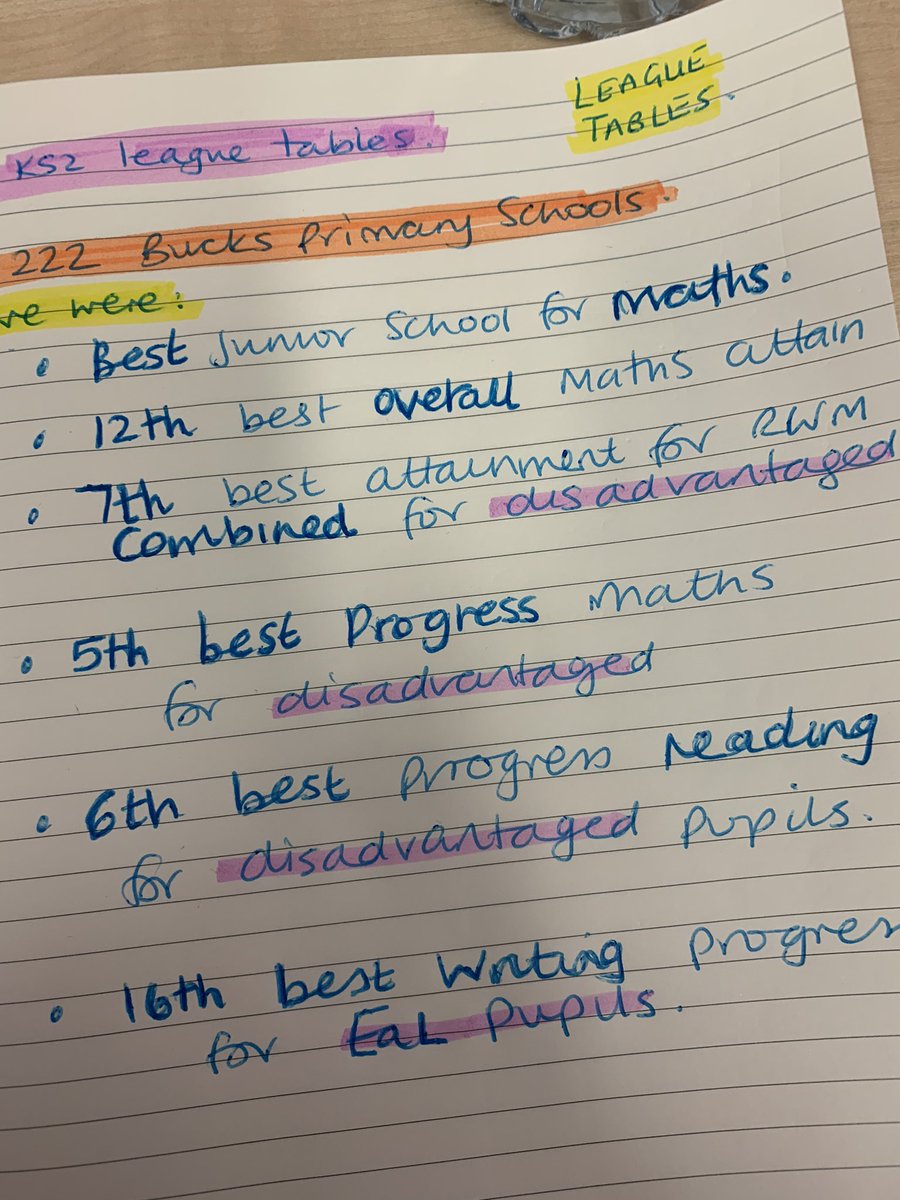 LEAGUE
TABLES.
KS2 league tables.
222 Bucks Primary Schools.
we were:
• Best Junior School for Maths.
• 12th best overall Maths attain
• 7th best attainment for RWM
Combined for disadvantaged
• 5th best Progress Maths
for disadvantaged
• 6th best progress reading
for disadvantaged pupils.
• 16th best Writing progres
for EaL Pupils.